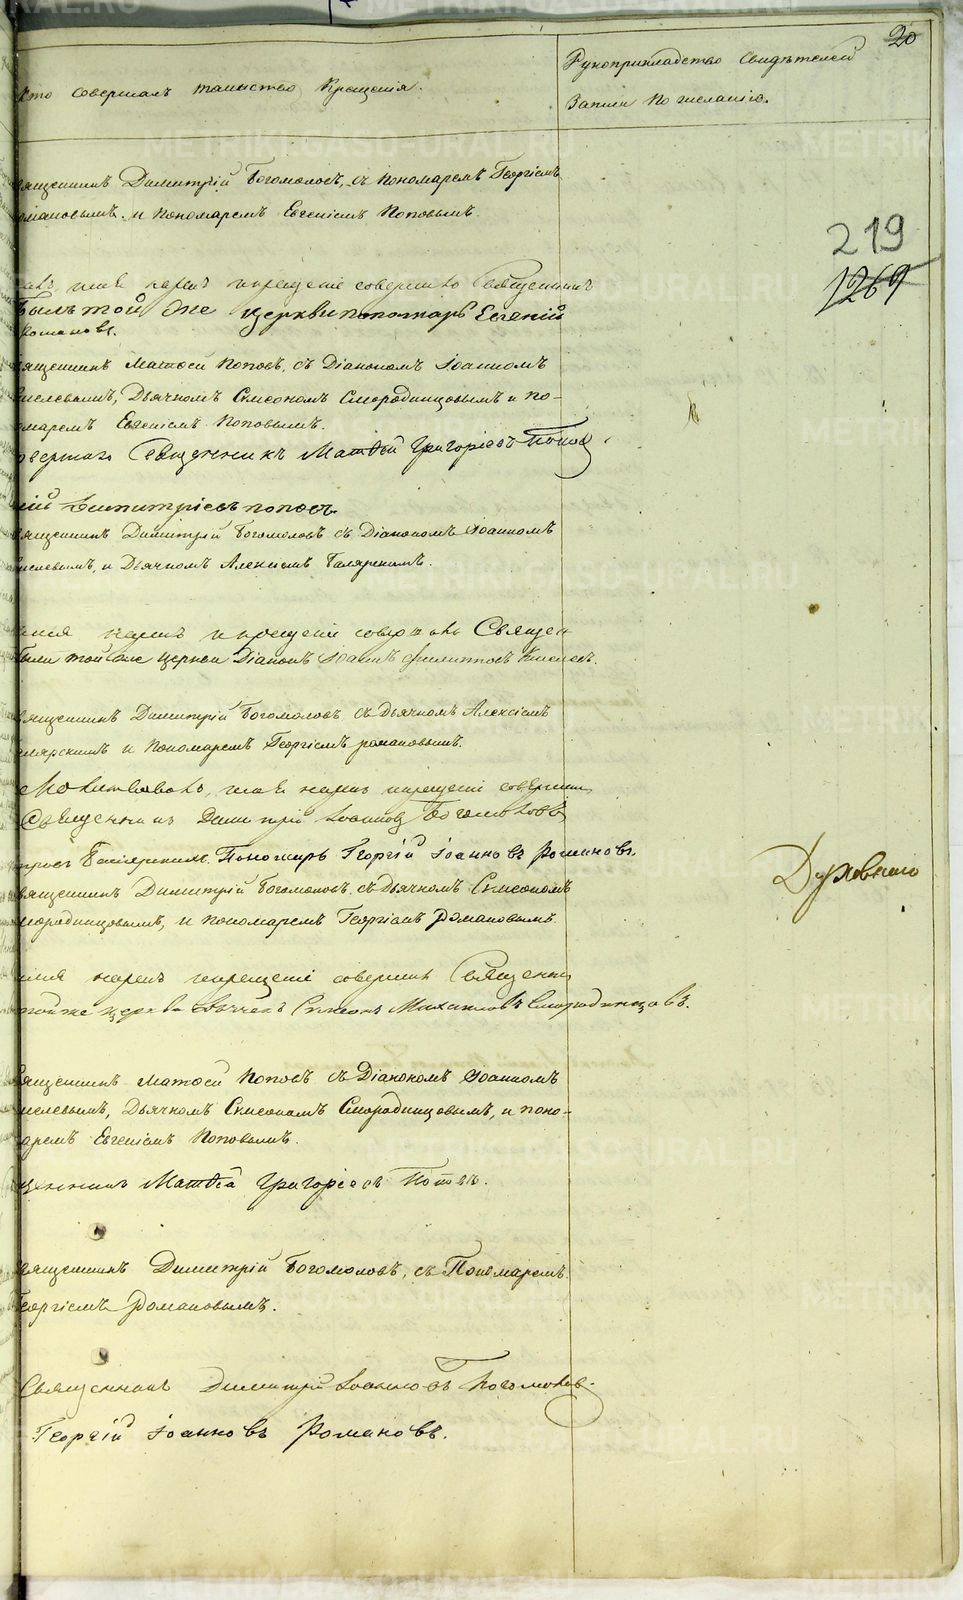 20
Кто совершалъ таинство Крещенія.
Рукоприкладство свидѣтелей
записи по желанію.
Священникъ Димитрій Богомоловъ, съ Пономаремъ Георгіемъ
Романовымъ. и Пономаремъ Евгеніемъ Поповымъ.
219
1269
имя нарекъ и крещеніе совершилъ Священникъ
Былъ той же церкви пономарь Евгеній
Романовъ.
Священникъ Матѳей Поповъ, съ Діакономъ Іоанномъ
Киселевымъ, Дьячкомъ Симеономъ Смородинцовымъ и по-
номаремъ Евгеніемъ Поповымъ.
совершилъ Священникъ Матѳей Григорьевъ Поповъ
ній Димитріевъ поповъ
Священникъ Димитрій Богомоловъ съ Діакономъ Іоанномъ
Киселевымъ, и Дьячкомъ Алексіемъ Галярскимъ.
имя нарекъ и крещеніе совершилъ Священ
были той же церкви Діаконъ Іоаннъ Филипповъ Киселевъ.
Священникъ Димитрій Богомоловъ съ Дьячкомъ Алексіемъ
Галярскимъ и Пономаремъ Георгіемъ Романовымъ.
Молитвовалъ, имя нарекъ и крещеніе совершилъ
Священникъ Димитрій Іоанновъ Богомоловъ
Пономарь Георгій Іоанновъ Романовъ.
Духовнаго
Священникъ Димитрій Богомоловъ, съ Дьячкомъ Симеономъ
Смородинцовымъ, и пономаремъ Георгіемъ Романовымъ
имя нарекъ и крещеніе совершилъ Священни
той же церкви Дьячекъ Симеонъ Михайловъ Смородинцовъ.
Священникъ Матѳей Поповъ съ Діакономъ Іоанномъ
Киселевымъ, Дьячкомъ Симеономъ Смородинцовымъ, и поно-
маремъ Евгеніемъ Поповымъ.
Священникъ Матѳей Григорьевъ Поповъ.
Священникъ Димитрій Богомоловъ, съ Пономаремъ
Георгіемъ Романовымъ.
Священникъ Димитрій Іоанновъ Богомоловъ.
Георгій Іоанновъ Романовъ.